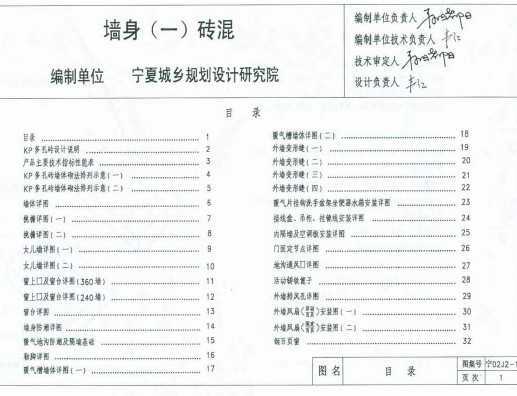 墙身（一）砖混
编制单位 宁夏城乡规划设计研究院
编制单位负责人
编制单位技术负责人
技术审定人
设计负责人
目 录
目录 1
KP多孔砖设计说明 2
产品主要技术指标性能表 3
KP多孔砖墙体砌法排列示意(一) 4
KP多孔砖墙体砌法排列示意(二) 5
墙体详图 6
挑檐详图(一) 7
挑檐详图(二) 8
女儿墙详图(一) 9
女儿墙详图(二) 10
窗上口及窗台详图(360墙) 11
窗上口及窗台详图(240墙) 12
窗台详图 13
墙身防潮详图 14
暖气地沟防潮及隔墙基础 15
勒脚详图 16
暖气槽墙体详图(一) 17
暖气槽墙体详图(二) 18
外墙变形缝(一) 19
外墙变形缝(二) 20
外墙变形缝(三) 21
外墙变形缝(四) 22
暖气片挂钩洗手盆架坐便器水箱安装详图 23
接线盒、吊柜、挂镜线安装详图 24
内隔墙及空调板安装详图 25
门固定节点详图 26
地沟通风口详图 27
活动铸铁篦子 28
外墙排风孔详图 29
外墙风扇 安装图(一) 30
外墙风扇 安装图(二) 31
钢百页窗 32
图名 目 录 图集号 宁02J2-1
页次 1